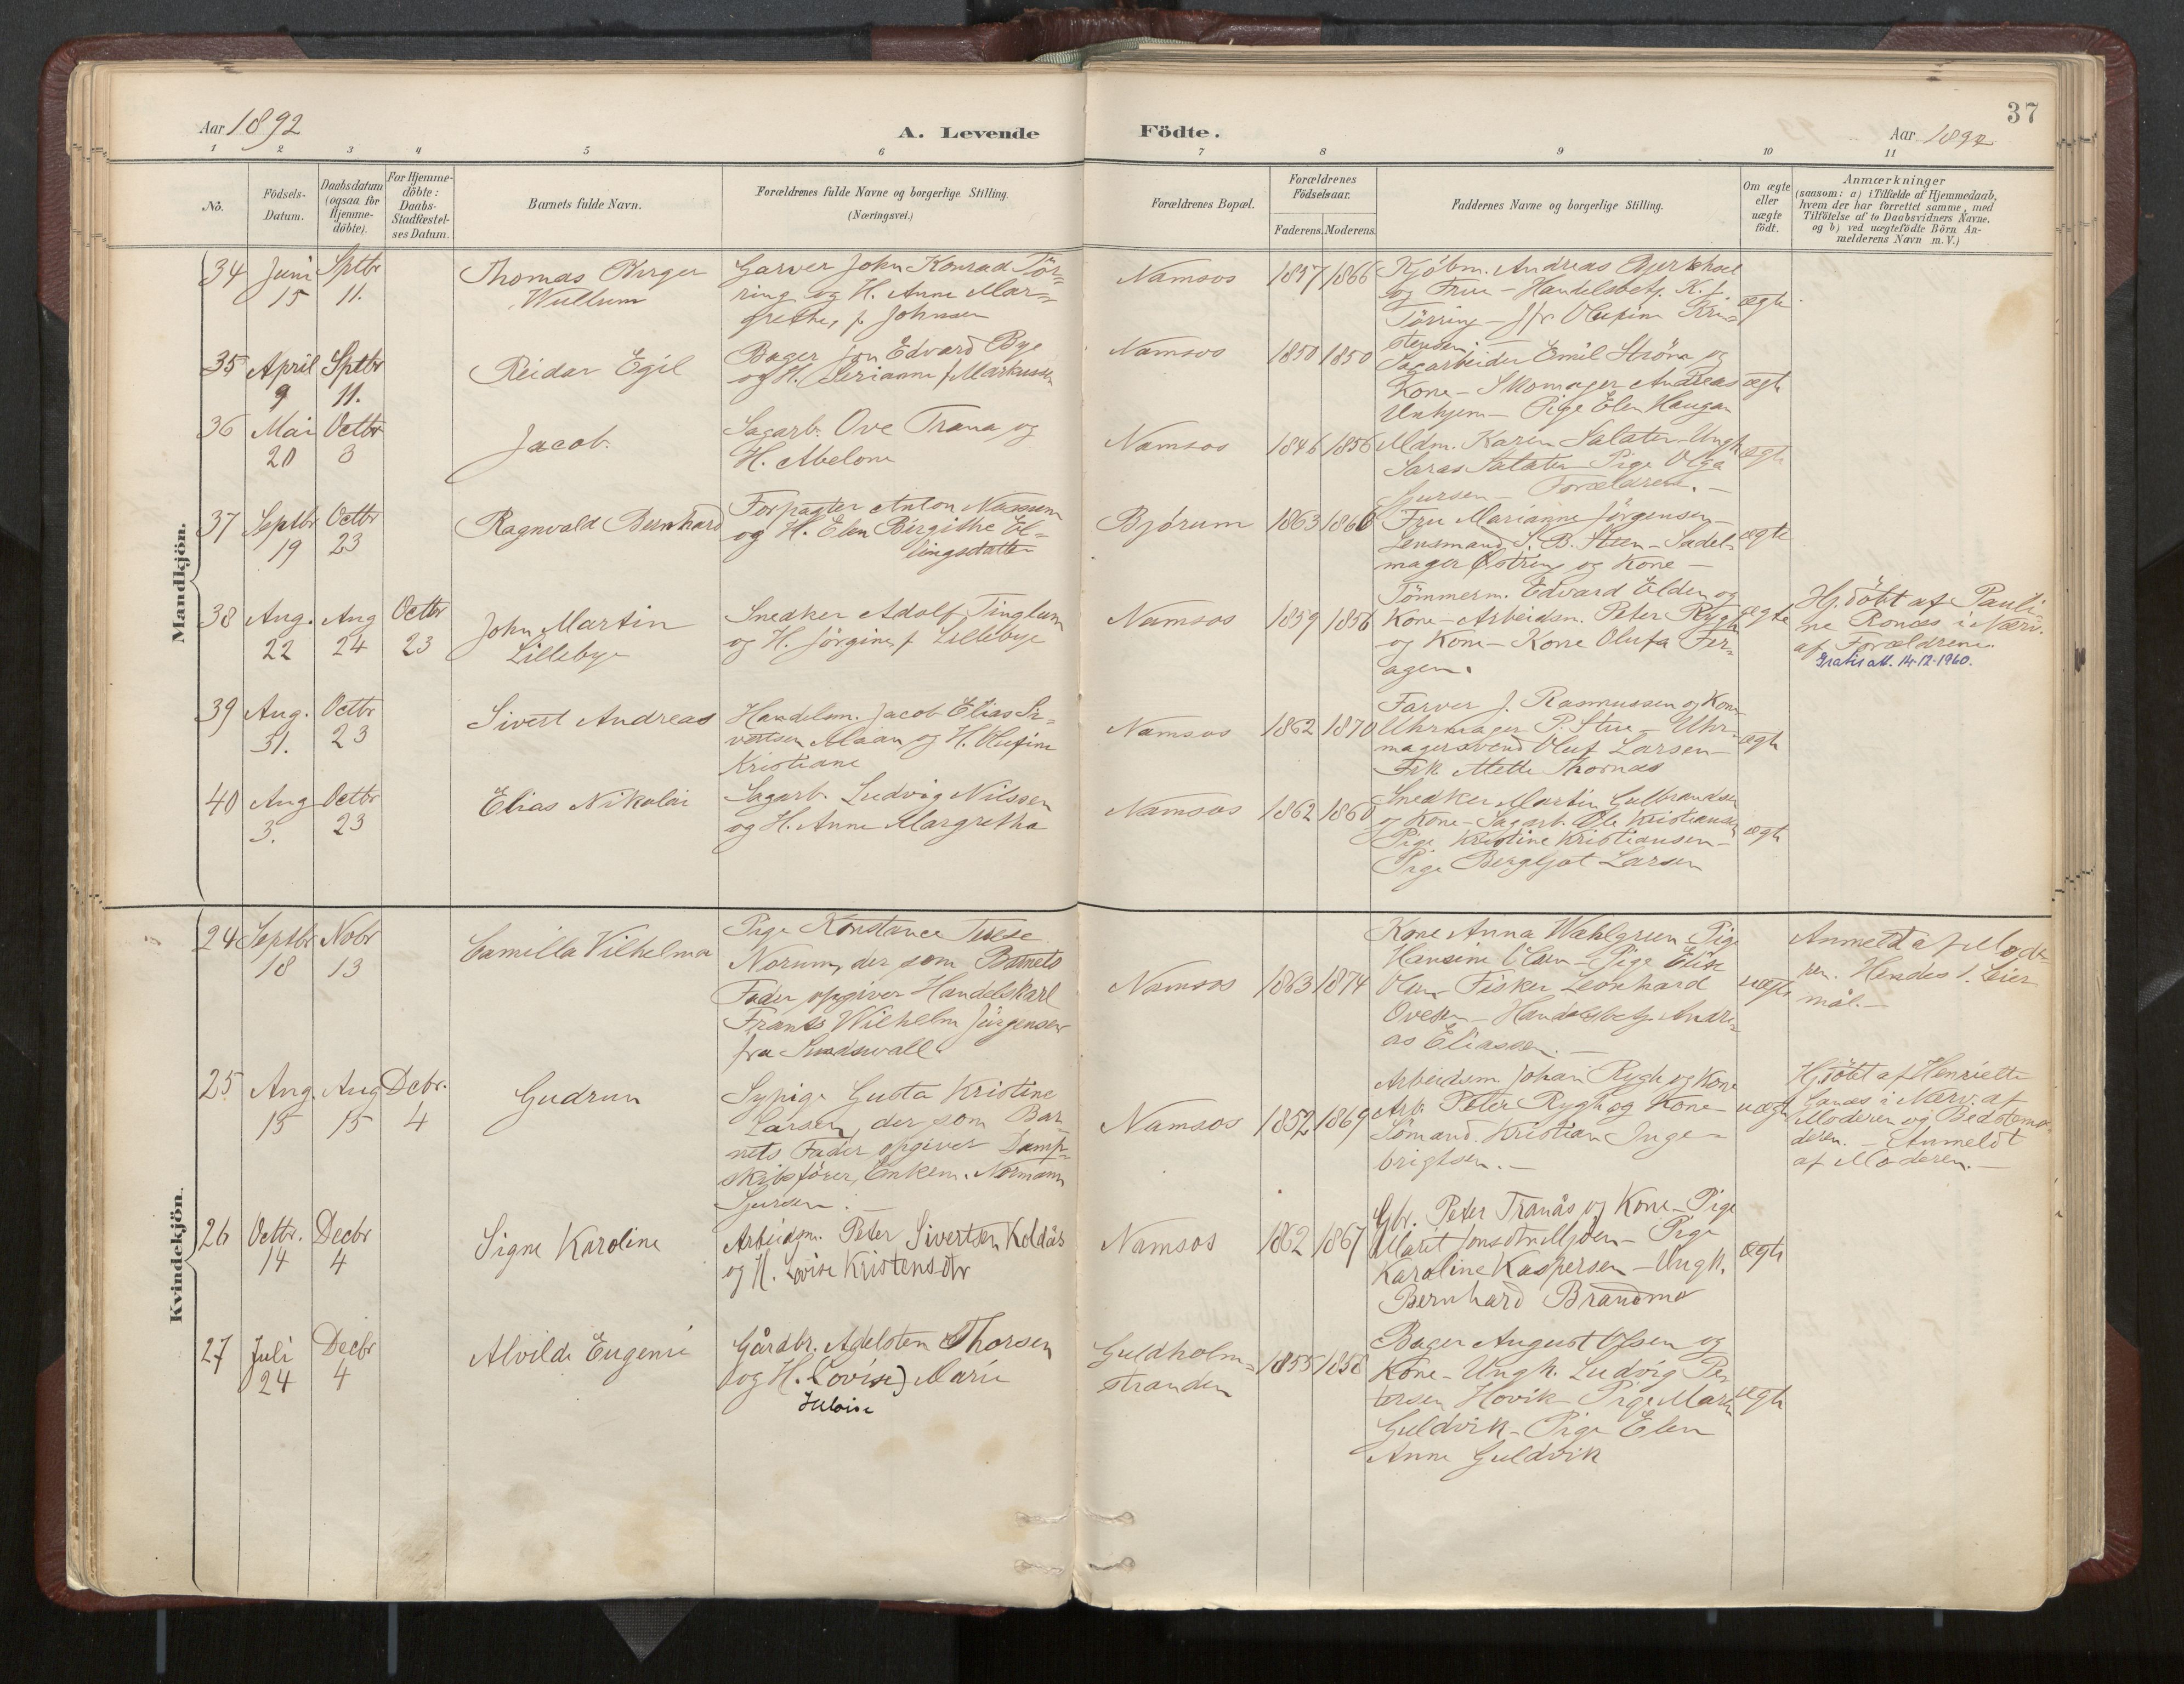 Aar 1892
A. Levende
Födte.
Aar 1892
37
1 2 3 4 5 6 7 8 9 10 11
No.
Födsels-
Datum.
Daabsdatum
(ogsaa for
Hjemme-
döbte).
For Hjemme-
döbte:
Daabs-
Stadfæstel-
ses Datum.
Barnets fulde Navn.
Forældrenes fulde Navne og borgerlige Stilling.
(Næringsvei.)
Forældrenes Bopæl.
Forældrenes
Födselsaar.
Faderens. Moderens.
Faddernes Navne og borgerlige Stilling.
Om ægte
eller
uægte
födt.
Anmærkninger
(saasom: a) i Tilfælde af Hjemmedaab,
hvem der har forrettet samme, med
Tilföielse af to Daabsvidners Navne,
og b) ved uægtefödte Börn An-
melderens Navn m. V.)
Mandkjön.
34
Juni
15
Sptbr
11.
Thomas Birger
Wullum
Garver John Konrad Tör-
ring og H. Anne Mar-
grethe, f. Johnsen
Namsos
1857
1866
Kjöbm. Andreas Bjerkhoel
og Frue - Handelsbetj. K. J.
Törring - Jfr Olufine Kri-
stensen.
ægte
35
April
9
Sptbr
11.
Reidar Egil
Bager Jon Edvard Bye
og H. Serianna f. Markussen
Namsos
1850
1850
Sagarbeider Emil Ströna og
Kone - Skomager Andreas
Unhjem - Pige Elen Haugan
ægte
36
Mai
20
Octbr
3
Jacob.
Sagarb. Ove Trana og
H. Abelone
Namsos
1846
1856
Mdm. Karen Salater - Ungk
Saras Salater Pige Olga
Sjursen - Forældrene. -
ægte
37
Septbr
19
Octbr
23
Ragnvald Bernhard
Forpagter Anton Næssum
og H. Elen Birgithe El-
lingsdatter
Bjórum
1863
1866
Fru Marianne Jörgensen -
Lensmand S. B. Steen - Sadel-
mager Östring og Kone -
ægte
38
Aug.
22
Aug
24
Octbr
23
John Martin
Lillebye
Snedker Adolf Tinglum
og H. Jörgine f. Lillebye
Namsos
1859
1856
Tömmerm. Edvard Elden og
Kone - Arbeidsm. Peter Rygh
og Kone - Kone Olufa Fer-
agen.
ægte
Hj. döbt af Pauli-
ne Ronæs i Nærv.
af Forældrene.
Gratis att. 14-12-1960.
39
Aug.
31.
Octbr
23
Sivert Andreas
Handelsm. Jacob Elias Si-
vertsen Maan og H. Olufine
Kristiane
Namsos
1862
1870
Farver J. Rasmussen og Kone
Uhrmager P. Stue - Uhr-
magersvend Oluf Larsen -
Frk Mette Thornæs
ægte
40
Aug
3.
Octbr
23
Elias Nikolai
Sagarb. Ludvig Nilssen
og H. Anne Margretha
Namsos
1862
1860
Snedker Martin Gulbrandsen
og Kone - Sagarb. Ole Kristiansen
Pige Kristine Kristiansen -
Pige Bergljot Larsen
ægte
Kvindekjön.
24
Septbr
18
Nobr
13
Camilla Vilhelma
Pige Konstance Terese
Norum, der som Barnets
Fader opgiver Handelskarl
Frants Wilhelm Jürgensen
fra Sundsvall.
Namsos
1863
1874
Kone Anna Wahlgreen Pige
Hansine Olsen - Pige Elise
Olsen Fisker Leonhard
Ovesen - Handelsbetj. Andre-
as Eliassen. -
uægte
Anmeldt af Mode-
ren. Hendes 1. Leier
mål. -
25
Aug.
15
Aug
15
Dcbr.
4
Gudrun
Sypige Gusta Kristine
Larsen, der som Bar-
nets Fader opgiver Damp-
skibsförer, Enkem. Normann
Sjursen. -
Namsos
1852
1869
Arbeidsm. Johan Rygh og Kone
Arb. Peter Rygh og Kone -
Sömand. Kristian Inge-
brigtsen. -
uægte
Hj. döbt af Henriette
Ganæs i Nærv. af
Moderen og Bedstemo-
deren. - Anmeldt
af Moderen. -
26
Octbr.
14
Decbr
4
Signe Karoline
Arbeidsm. Peter Sivertsen Keldås
og H. Lovise Kristensdtr
Namsos
1862
1867
Gbr. Peter Tranås og Kone - Pige
Marit Jonsdtr Mjöen - Pige
Karoline Kaspersen - Ungk.
Bernhard Brandmo
ægte
27
Juli
24
Decbr
4
Alvilde Eugenie
Gårdbr. Adelsten Thorsen
og H. (Lovise) Marie
Heloise
Guldholm-
stranden
1855
1858
Bager August Olsen og
Kone - Ungk. Ludvig Pe-
tersen Hovik - Pige Martha
Guldvik - Pige Elen
Anne Guldvik
ægte